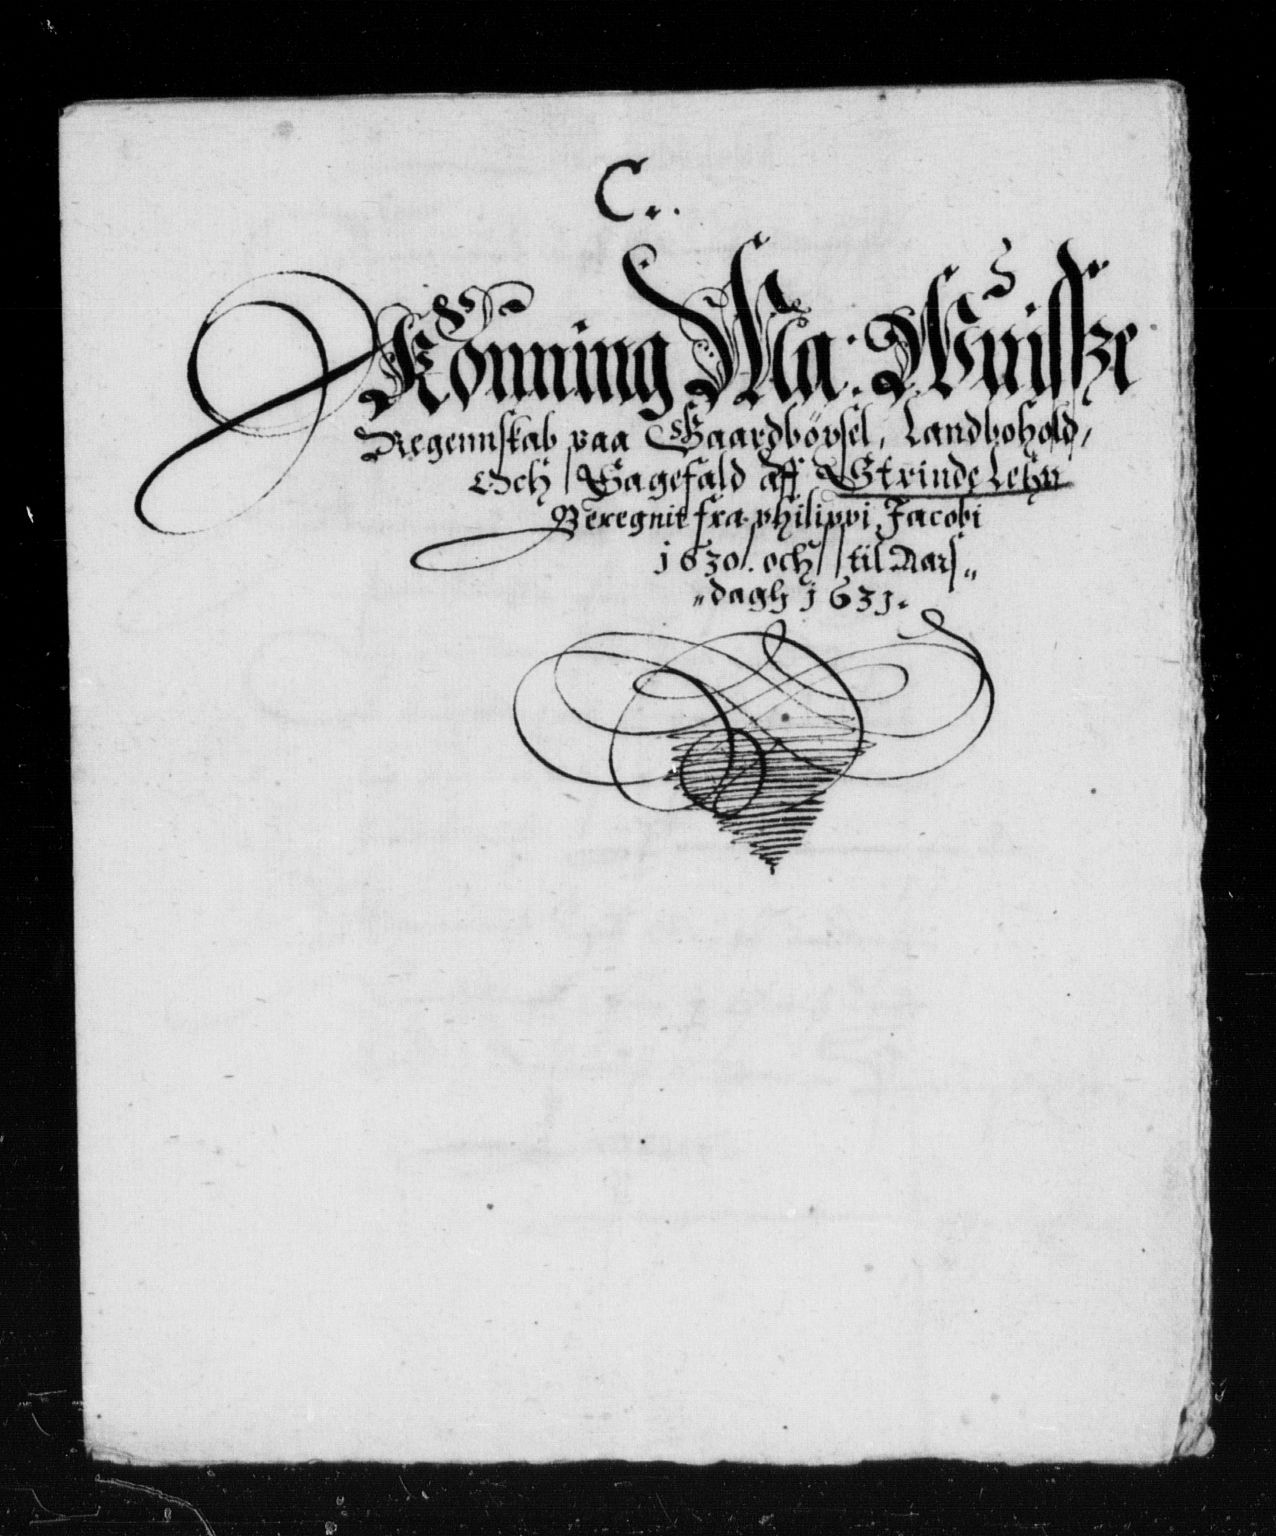 C..
Konning Ma: Wuissze
Regennskab paa Gaardbörsel, Landbohold,
Och Sagefald aff Strinde Lehn
Beregnit fra philippi Jacobi
1630. och til Aars„
„dagh 1631.